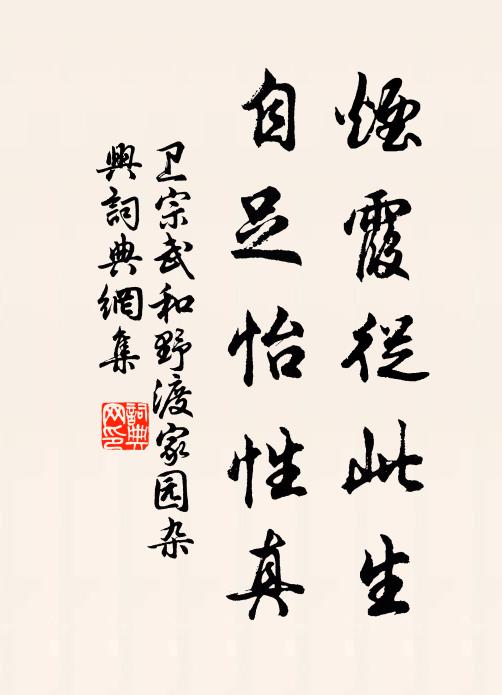 煙霞從此生
自足怡性真
卫宗武和野渡家园杂
興詞典網集
詞典
网印